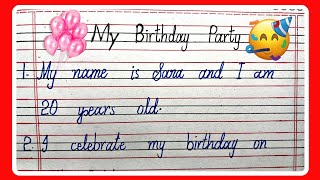 My Birthday Party
1. My name is Sara and I am
20 years old.
2. I celebrate my birthday on